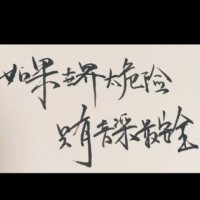 如果世界太危险
只有音乐最安全